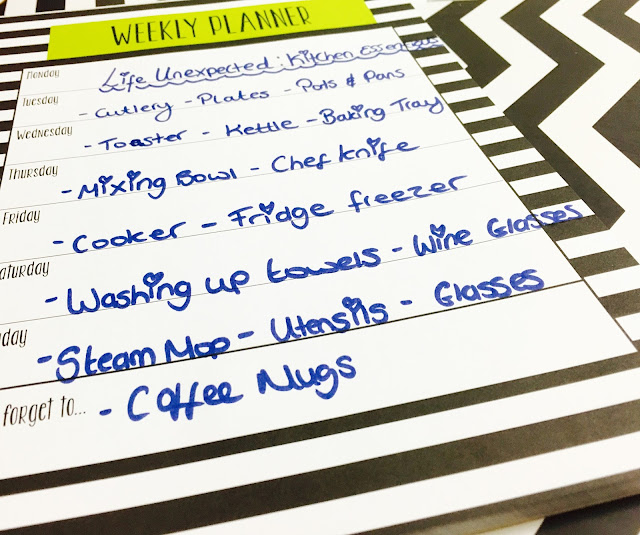 WEEKLY PLANNER
Monday
Life Unexpected: Kitchen
Tuesday
- Cutlery - Plates - Pots & Pans
Wednesday
- Toaster - Kettle - Baking Tray
Thursday
- Mixing Bowl - Chef knife
Friday
- Cooker - Fridge freezer
aturday
- Washing up towels - Wine Glasses
day
- Steam Mop - Utensils - Glasses
forget to...
- Coffee Mugs